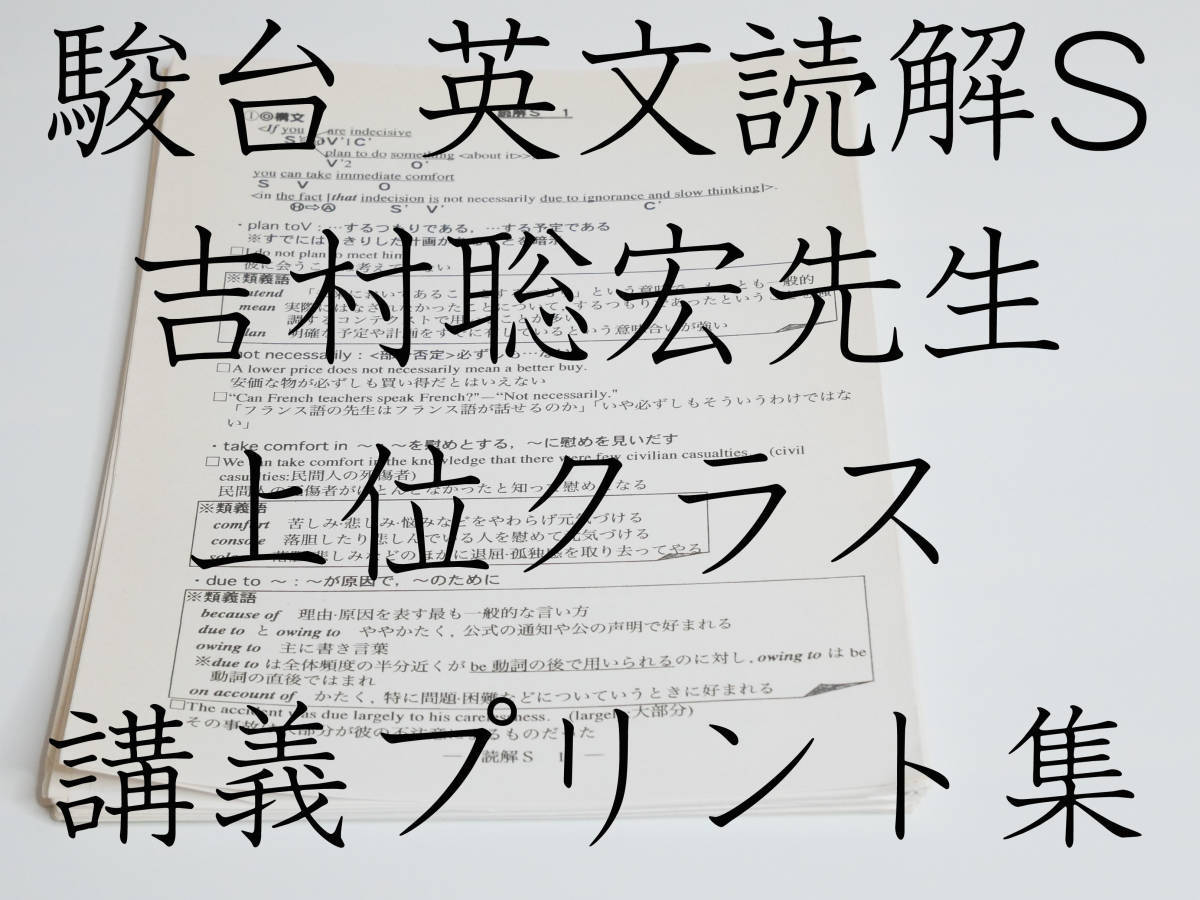 駿台 英文読解S
①◎構文
読解S 1
<If you are indecisive
S' V'1 C'
plan to do something <about it>>
V'2 O'
you can take immediate comfort
S V O
<in the fact [that indecision is not necessarily due to ignorance and slow thinking]>.
Ⓗ⇨Ⓐ S' V' C'
・plan toV：…するつもりである，…する予定である
※すでには
□I do not plan to meet him
吉村聡宏先生
※類義語
mean 実際にはなされなかったことについて、するつもりであったという
明確な予定や計画をすでに有しているという意味合いが強い
not necessarily：<部分否定>必ずしも…ない
□A lower price does not necessarily mean a better buy.
安価な物が必ずしも買い得だとはいえない
□"Can French teachers speak French?"—"Not necessarily."
「フランス語の先生はフランス語が話せるのか」「いや必ずしもそういうわけではな
い」
・take comfort in ～：～を慰めとする，～に慰めを見いだす
□We can take comfort in the knowledge that there were few civilian casualties. (civil
casualties:民間人の死傷者)
民間人の死傷者がほとんどなかったと知って慰めになる
上位クラス
※類義語
comfort 苦しみ·悲しみ·悩みなどをやわらげ元気づける
console 落胆したり悲しんでいる人を慰めて元気づける
悲しみなどのほかに退屈·孤独感を取り去ってやる
・due to ～：～が原因で，～のために
※類義語
because of 理由·原因を表す最も一般的な言い方
due to と owing to ややかたく，公式の通知や公の声明で好まれる
owing to 主に書き言葉
※due to は全体頻度の半分近くが be 動詞の後で用いられるのに対し，owing to は be
動詞の直後ではまれ
on account of かたく，特に問題·困難などについていうときに好まれる
□The accident was due largely to his carelessness. (largely 大部分)
その事故は大部分が彼の不注意によるものだった
― 読解S 1 ―
講義プリント集